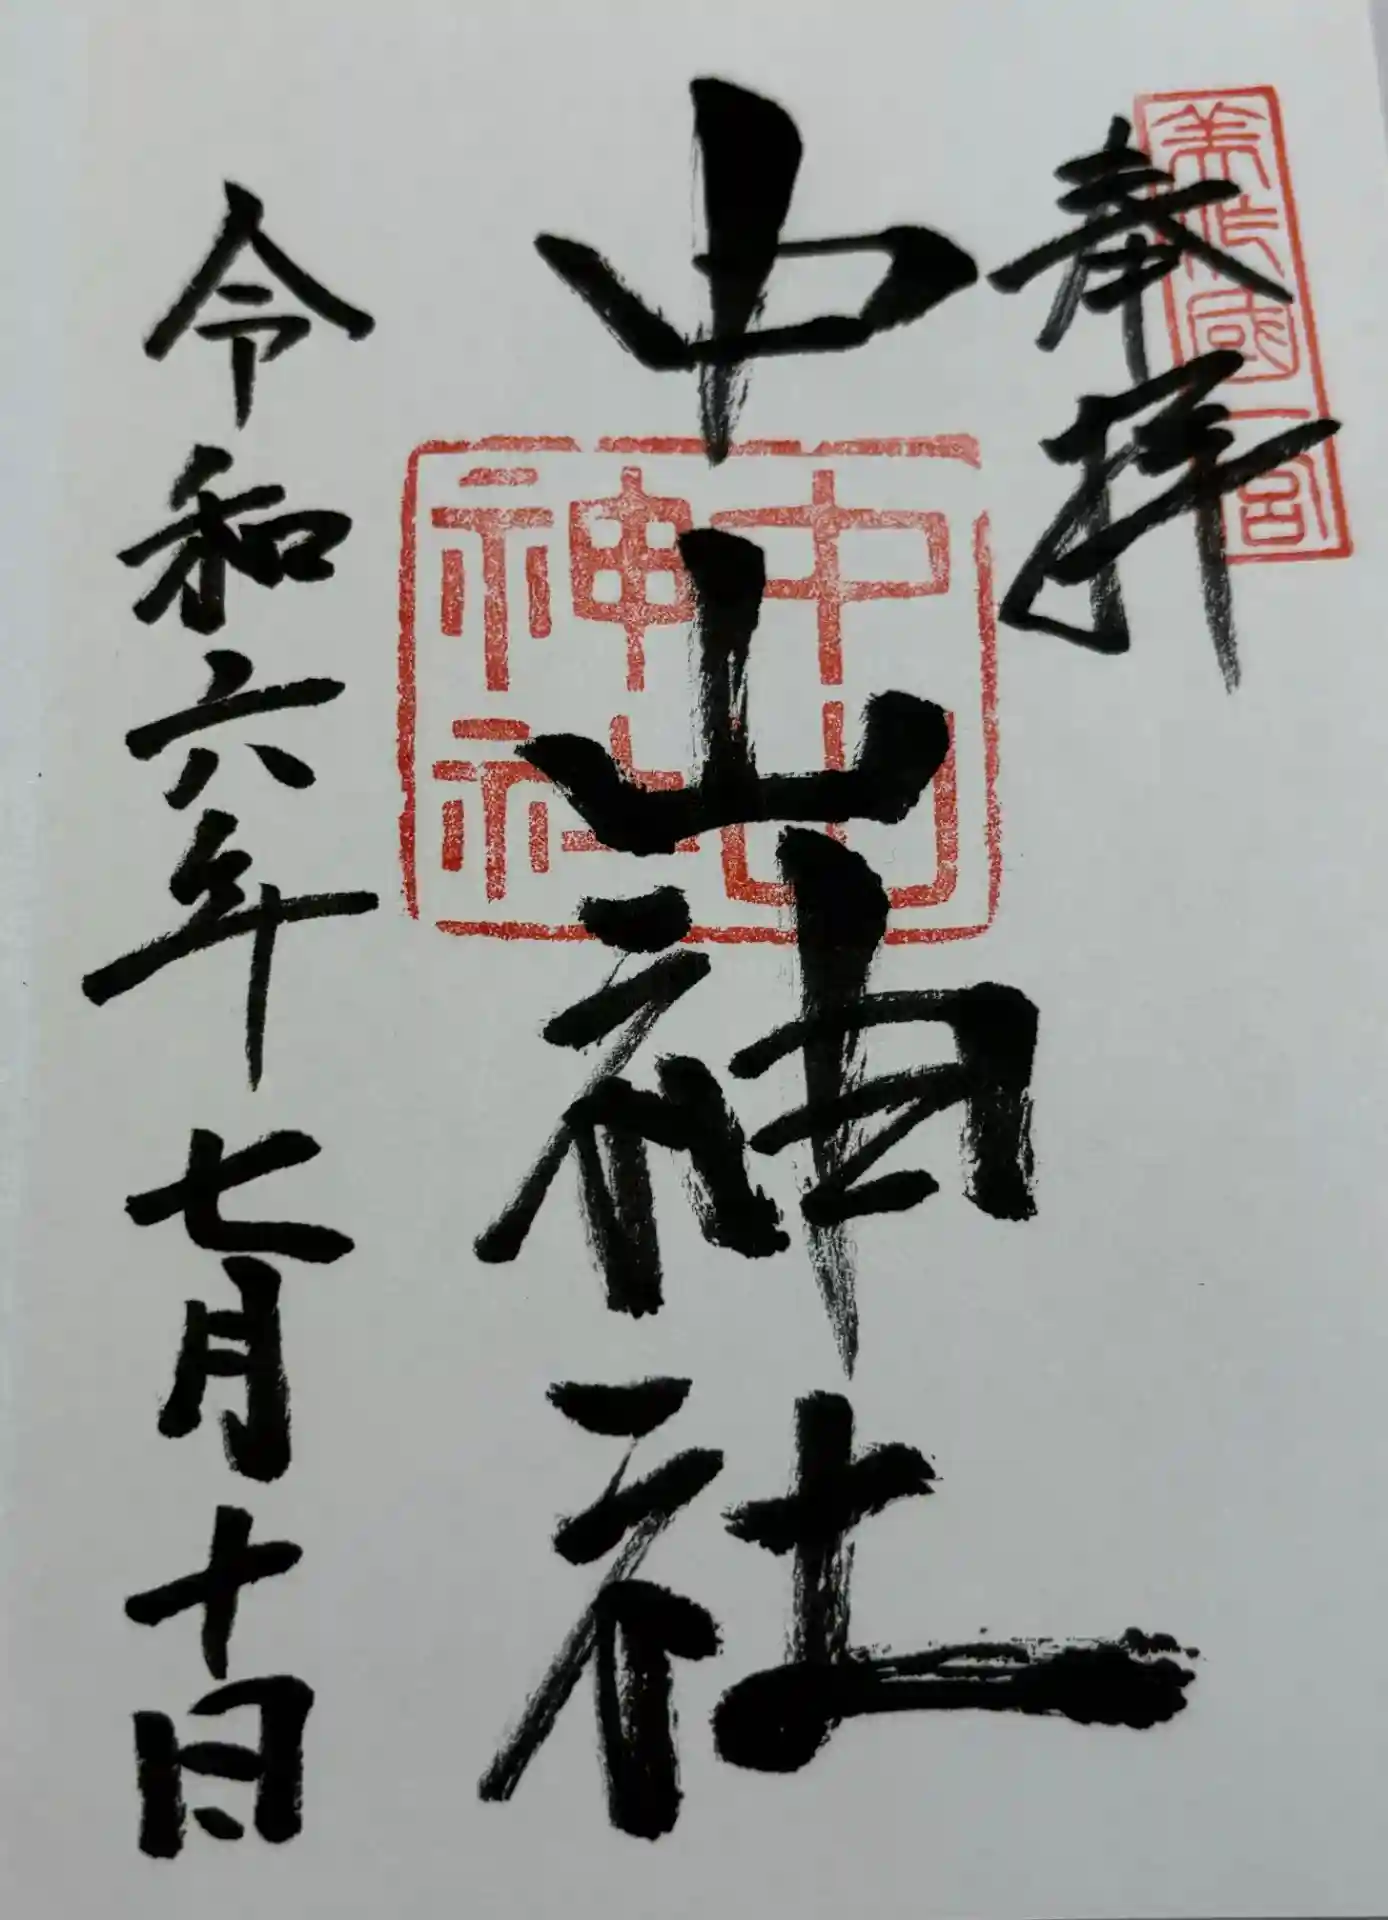 奉拝
美作國一宮
中山神社
中山神社
令和六年七月十日